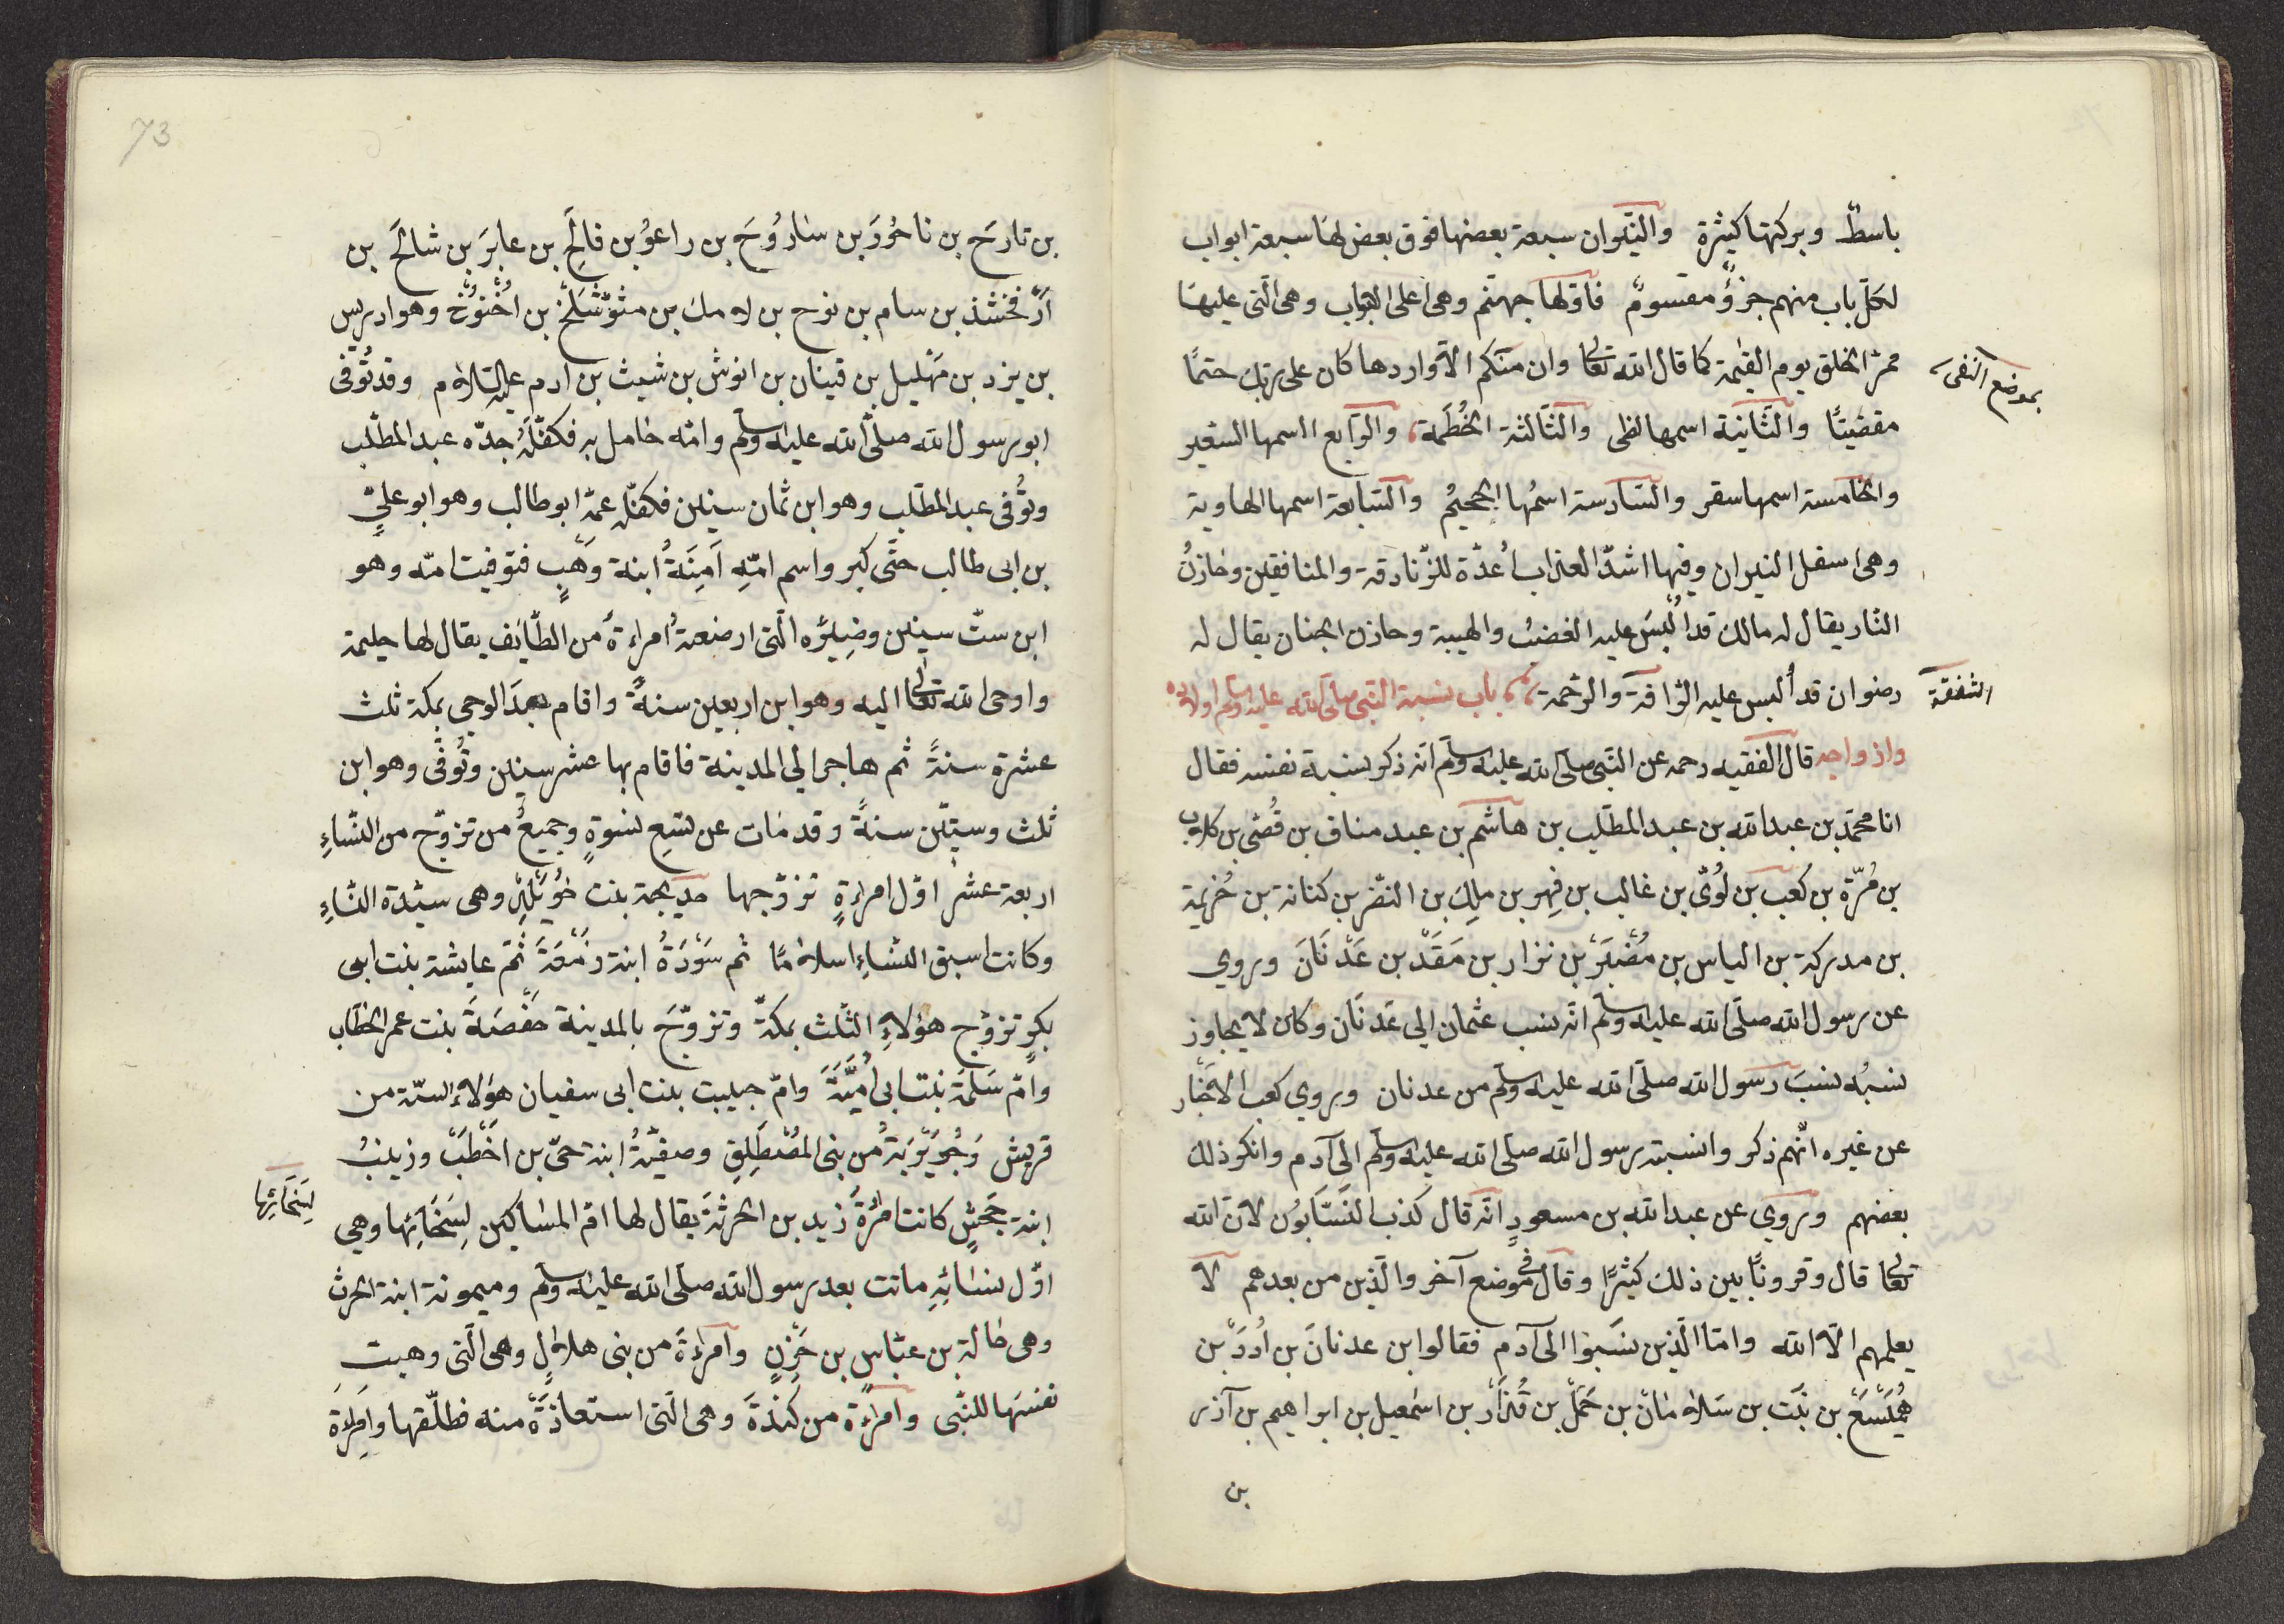 باسطٌ وبركتها كثيرة والنّيران سبعة بعضها فوق بعض لها سبعة ابواب
لكلّ باب منهم جزؤٌ مقسومٌ فاوّلها جهنّم وهى اعلى الابواب وهى الّتى عليها
ممرّ الخلق يوم القيٰمة كما قال الله تعالى وان منكم الاّ واردها كان على ربّك حتمًا
بموضع النفى
مقضيّتًا والثّانية اسمها لظى والثّالثة الحُطَمة والرّابع اسمها السّعير
والخامسة اسمها سقر والسّادسة اسمُها الجحيمُ والسّابعة اسمها الهاوية
وهى اسفل النيران وفيها اشدّ العذاب اُعدّة للزّنادقة والمنافقين وخازنُ
النّار يقال له مالك قد اُلْبِسَ عليه الغضبُ والهيبة وخازن الجنان يقال له
رضوان قد أُلبس عليه الرّافة والرّحمة باب نسبة النّبى صلّى الله عليه وسلّم اولاده
الشفقة
وازواجه قال الفقيه رحمه عن النّبى صلّى الله عليه وسلّم انّه ذكر نسبة نفسه فقال
انا محمّد بن عبد الله بن عبد المطّلب بن هاشم بن عبد مناف بن قُصَّى بن كلاب
بن مُرّة بن كُعب بن لُوىّ بن غالب بن فِهر بن ملِك بن النّضر بن كنانة بن خُزيمة
بن مدركة بن الياس بن مُضَر بن نزار بن مَعَدّ بن عَدْنَانَ وروي
عن رسول الله صلّى الله عليه وسلّم انّه نسب عثمان الى عَدنَان وكان لا يجاوز
نسبُه نسبَ رسول الله صلّى الله عليه وسلّم من عدنان وروي كعب الاحْبار
عن غيره انّهم ذكر وانسبة رسول الله صلّى الله عليه وسلّم الى آدم وانكر ذلك
بعضهم وروي عن عبد الله بن مسعودٍ انّه قال كذب النّسّابون لانّ الله
تعالى قال وقرونًا بين ذلك كثيرًا وقال فى موضع آخر والّذين من بعدهم لا
يعلمهم الاّ الله وامّا الّذين نسَبوا الى آدم فقالوا ابن عدنانَ بن اُددَ بن
هُمَيْسَع بن نَبَت بن سَلامان بن حَمَل بن قُيذَار بن اسمٰعيل بن ابراهيم بن آذر
بن
73
بن تارحَ بن ناحُورَ بن سارُوحَ بن راعوُ بن فالَخ بن عابرَ بن شالَخَ بن
اَرْفَخْشَذ بن سام بن نوح بن لامك بن متُوَشْلَخْ بن اُخْنُوخْ وهو ادريس
بن يزد بن مَهْليل بن قينان بن انوش بن شيث بن ادم عليه السّلام وقد تُوفّى
ابو رسول الله صلّى الله عليه وسلّم وامّه حامل به فكفَّلَهُ جدّه عبد المطّلب
وتُوفّى عبد المطّلب وهو ابن ثمان سنين فكفّله عمّه ابو طالب وهو ابو عليٍّ
بن ابى طالب حتّى كبر واسم امّهِ اَمِنَةُ ابنة وَهْبٍ فتوفيت امّه وهو
ابن ستّ سنين وضِيئره الّتى ارضعته اُمراءة من الطّايف يقال لها حليمة
واوحى الله تعالى اليه وهو ابن اربعين سنةً واقام بعدَ الوحى بمكة ثلث
عشرة سنةً ثم هاجر الى المدينة فاقام بها عشر سنين وتُوفّى وهو ابن
ثلث وستّين سنةً وقد مات عن تسَع نسوةٍ وجميعُ من تزوّج من النّساءِ
اربعة عشر اوّل امراءةٍ تزوّجها خديجة بنت خُوَيْلِد وهى سيّدة النّساءِ
وكانت اسبق النّساءِ اسلامًا ثم سَوْدَةُ ابنة زَمْعَةَ ثمّ عايشة بنت ابى
بكرٍ تزوّج هؤلاءِ الثلث بمكّة وتزوّجَ بالمدينة حَفْصَةَ بنت عمر الخطّاب
وامّ سَلَمَة بنت ابى اُميَّةَ وامّ حبيبت بنت ابى سفيان هؤلاء السّتة من
قريش وَجُوَيْرَيَةُ من بنى المُصْطَلِقِ وصفيّةُ ابنة حىّ بن اَخْطَبْ وزينبُ
ابنة جَحْشٍ كانت امْرُءَةَ زيد بن الحرثة يقال لها امّ المساكين لِسَخَائِها وهى
لِسَخَائِها
اوّل نسائِهِ ماتت بعد رسول الله صلّى الله عليه وسلّم وميمونة ابنة الحرث
وهى خالة بن عبّاسٍ بن حَزْنٍ وامراءَة من بنى هلالٍ وهى الّتى وهبتِ
نفسَها للنّبى وامراءة من كِنْدَةَ وهى الّتى استعاذَتَهُ منه فطلّقها وامراءة